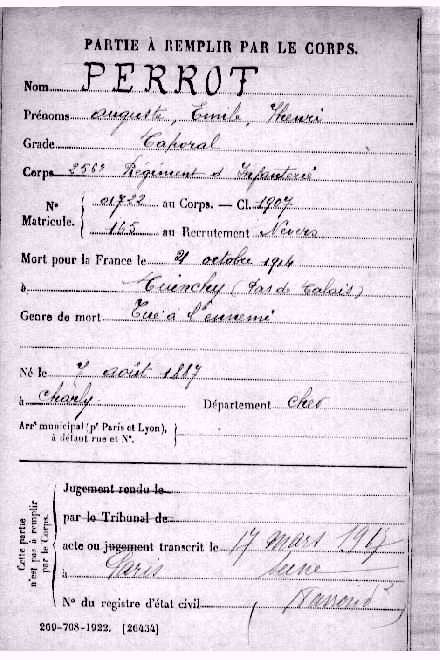 PARTIE À REMPLIR PAR LE CORPS.
Nom PERROT
Prénoms Auguste, Emile, Henri
Grade Caporal
Corps 256e Régiment d'Infanterie
N° Matricule. { 01722 au Corps. — Cl. 1907
165 au Recrutement Nevers
Mort pour la France le 21 octobre 1914
à (Pas de Calais)
Genre de mort Tué à l'ennemi
Né le 7 août 1887
à Charly Département Cher
Arrt municipal (pr Paris et Lyon),
à défaut rue et N°.
Cette partie
n'est pas à remplir
par le Corps.
Jugement rendu le
par le Tribunal de
acte ou jugement transcrit le 17 mars 1917
à Paris Seine
N° du registre d'état civil
269-708-1922. [26434]